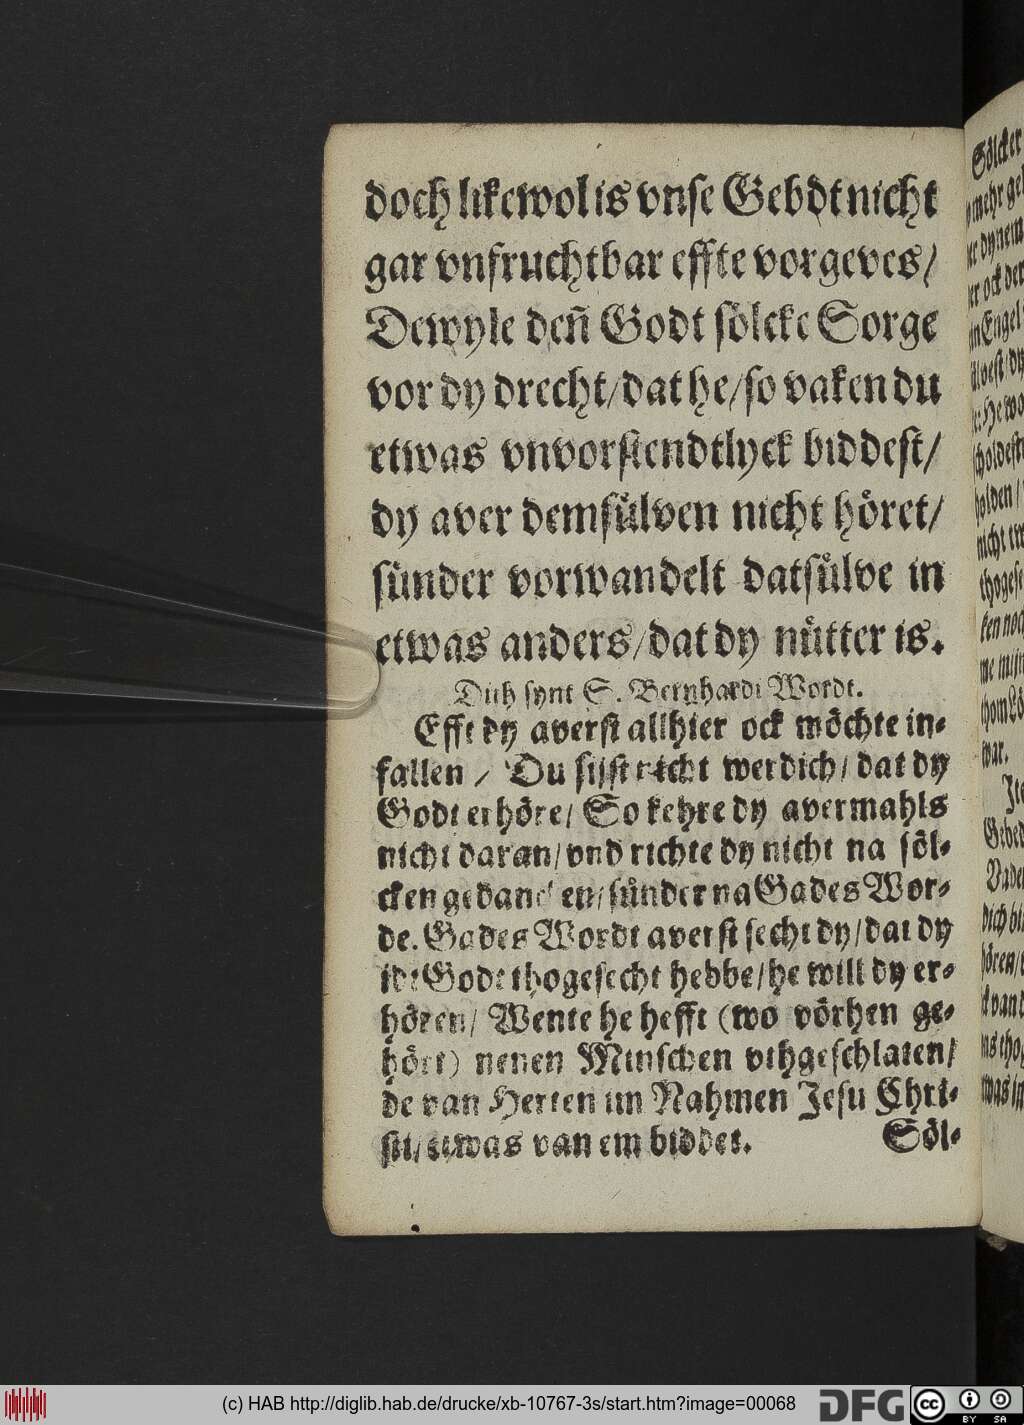 doch likewol is vnse Gebdt nicht
gar vnfruchtbar effte vorgeves/
Dewyle deñ Godt sölcke Sorge
vor dy drecht/dat he/so vaken du
etwas vnvorstendtlyck biddest/
dy aver demsülven nicht höret/
sünder vorwandelt datsülve in
etwas anders/dat dy nütter is.
Dith synt S. Bernhardi Wordt.
Efft dy averst allhier ock möchte in-
fallen / Du sijst nicht werdich/ dat dy
Godt erhöre/ So kehre dy avermahls
nicht daran/vnd richte dy nicht na söl-
cken gedancken/sünder na Gades Wor-
de. Gades Wordt averst secht dy/dat dy
idt Godt thogesecht hebbe/he will dy er-
hören/ Wente he hefft (wo vörhen ge-
hört) nenen Minschen vthgeschlaten/
de van Herten im Nahmen Jesu Chri-
sti/etwas van em biddet. Söl-
(c) HAB http://diglib.hab.de/drucke/xb-10767-3s/start.htm?image=00068
DFG
cc BY SA